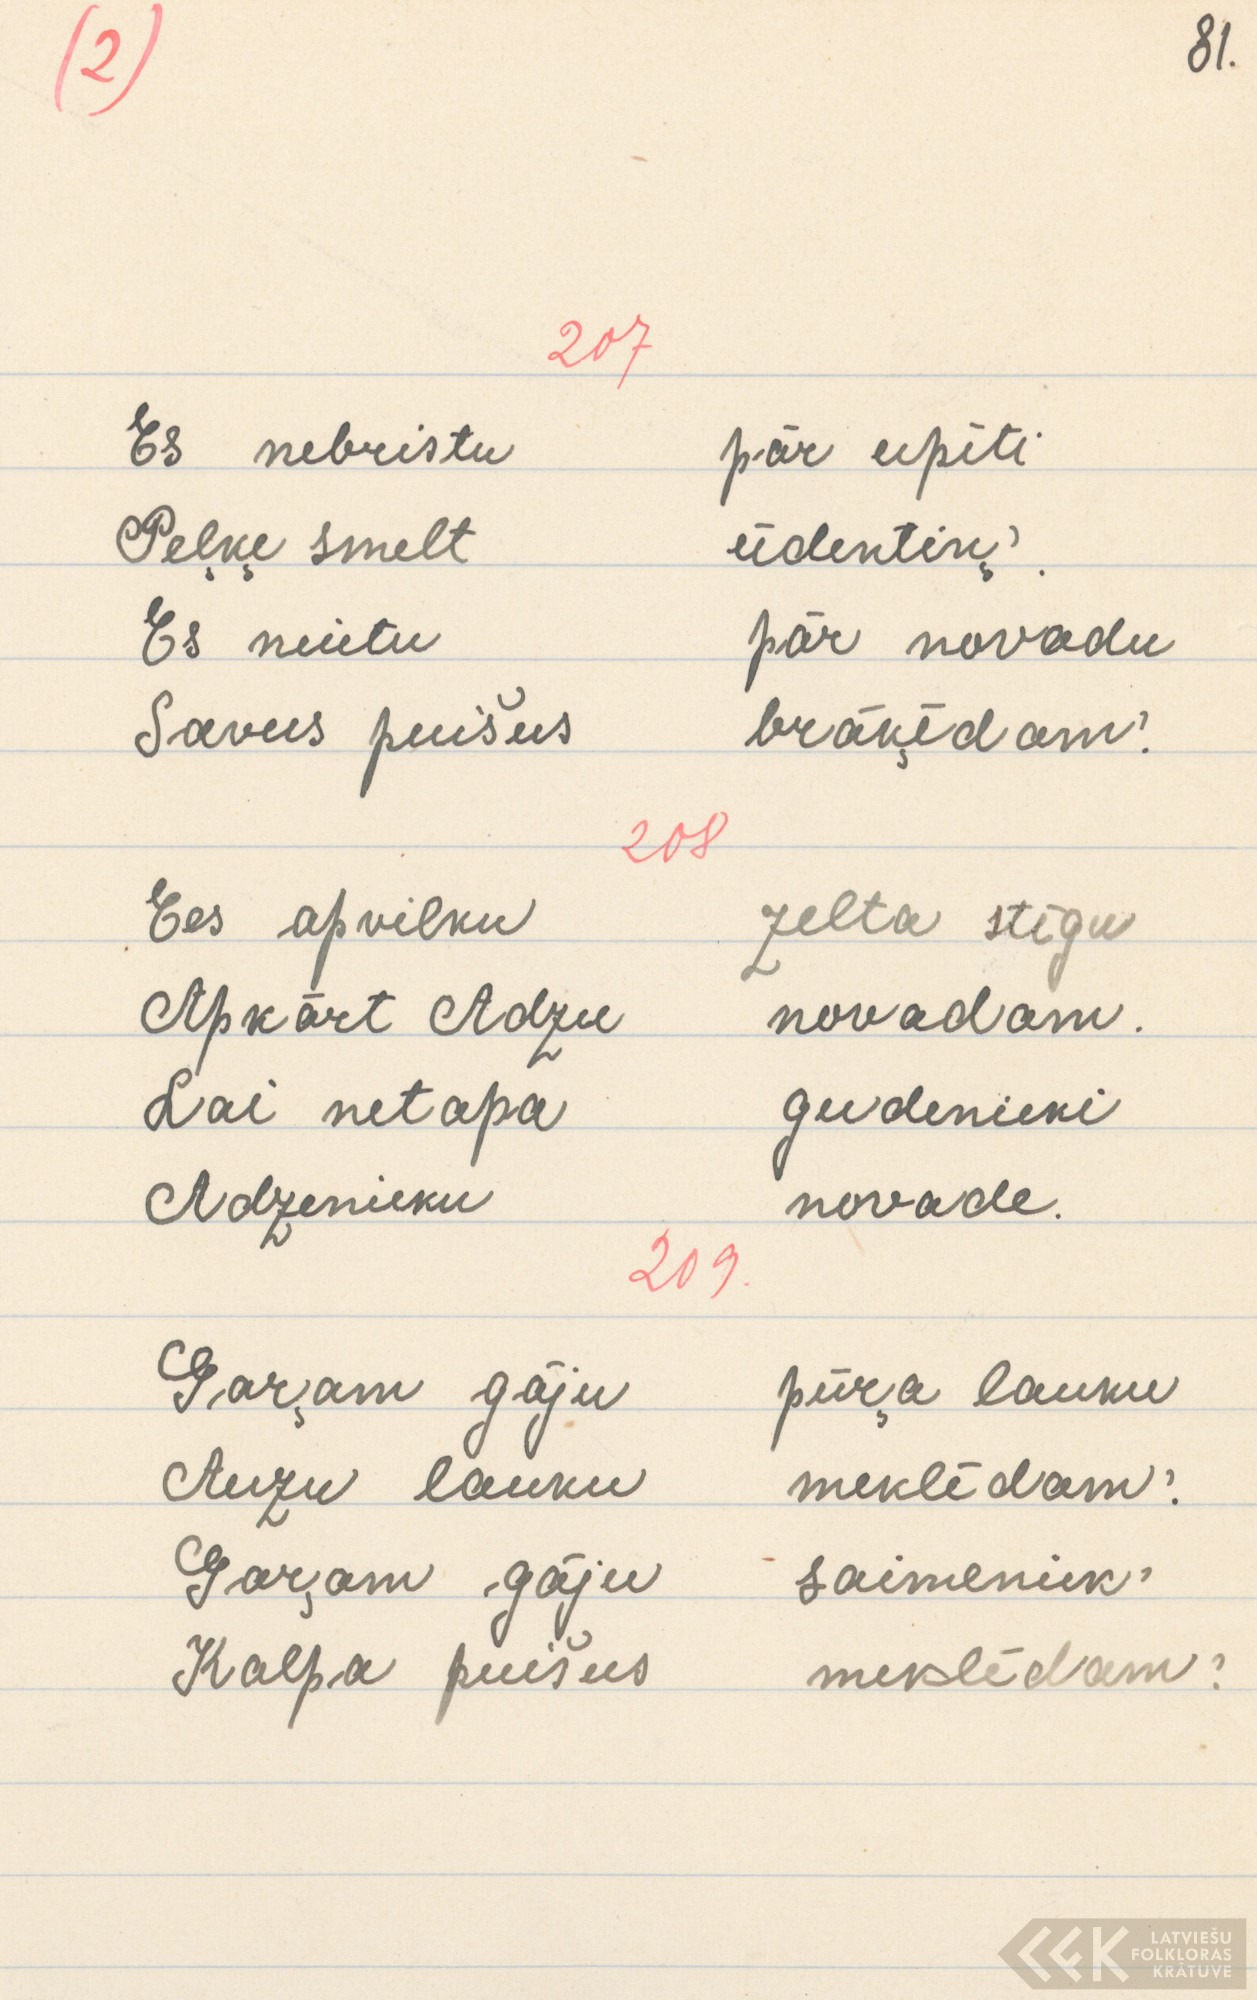 (2)
81.
207
Es nebristu pār upīti
Peļķe smelt ūdentiņ'.
Es neietu pār novadu
Savus puišus brāķēdam'.
208
Ees apvilku zelta stīgu
Apkārt Adzu novadam.
Lai netapa gudenieki
Adzenieku novade.
209.
Garŗam gāju pūŗa lauku
Auzu lauku meklēdam'.
Gaŗam gāju saimeniek'
Kalpa puišus meklēdam'.
LATVIEŠU
FOLKLORAS
KRĀTUVE